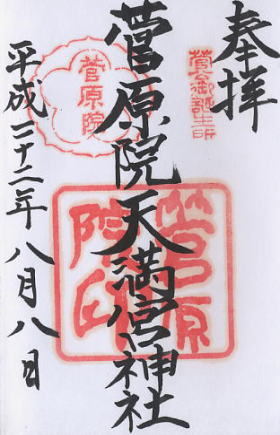 奉拝
菅公御誕生所
菅原院天満宮神社
菅原院
菅原院印
平成二十二年八月八日